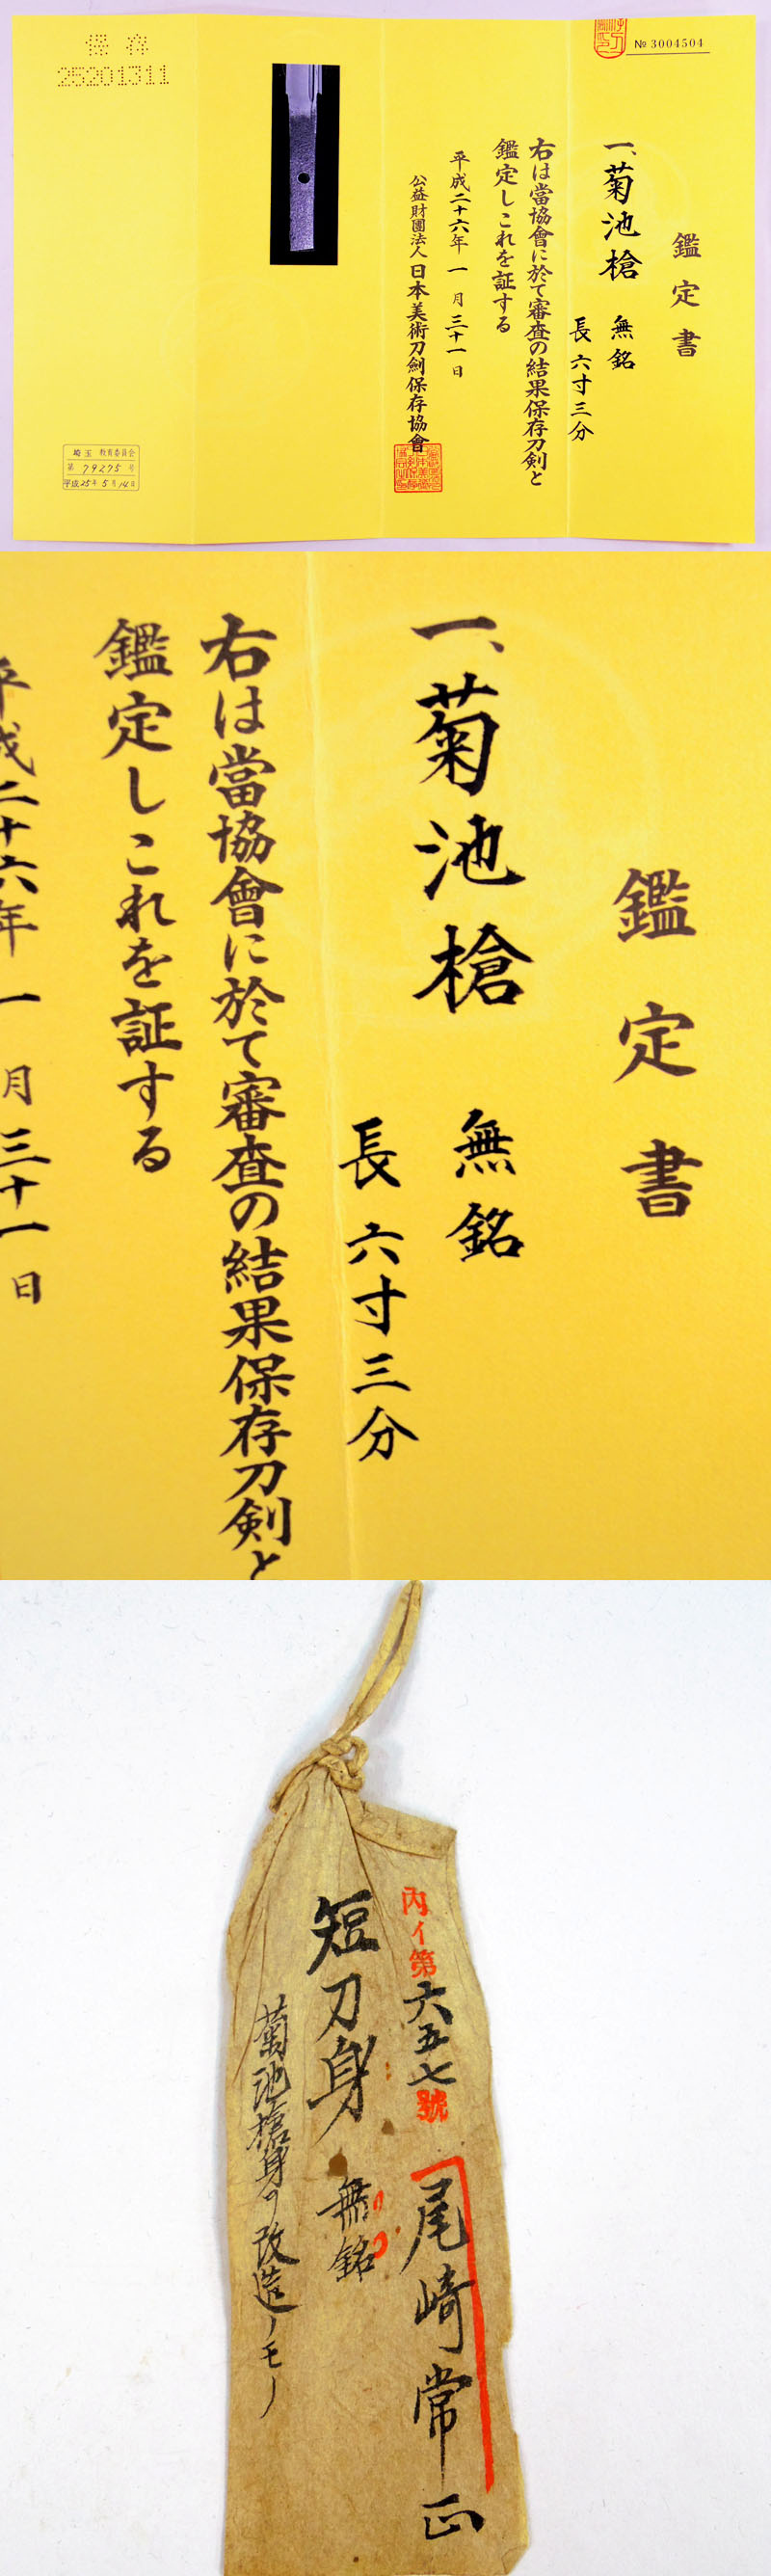 № 3004504
鑑定書
一、菊池槍 無銘
長 六寸三分
右は當協會に於て審査の結果保存刀剣と
鑑定しこれを証する
平成二十六年 一 月 三十一 日
公益財團法人 日本美術刀劍保存協會
保存
25201311
埼玉 教育委員会
第 79275 号
平成25年5月14日
鑑定書
一、菊池槍
無銘
長六寸三分
右は當協會に於て審査の結果保存刀剣と
鑑定しこれを証する
平成二十六年 一 月 三十一 日
内イ第六五七號
尾崎常正
短刀身 無銘
菊池槍身ヲ改造ノモノ